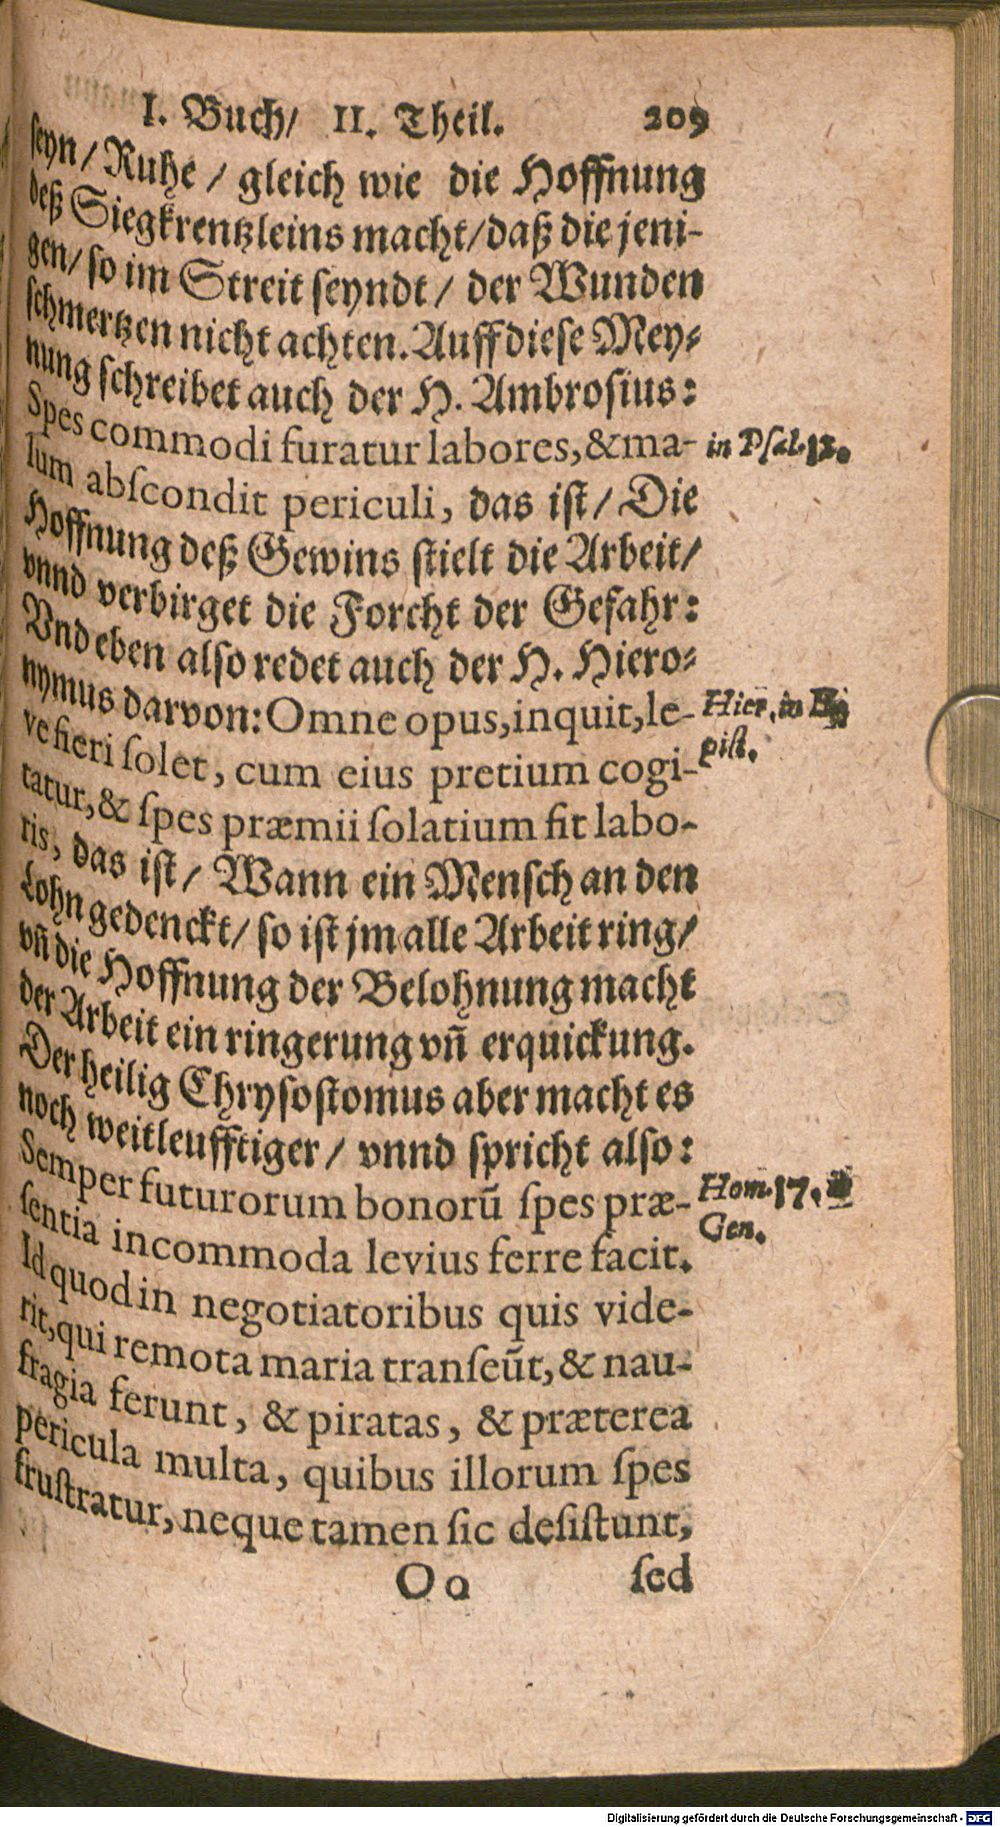 I. Buch/ II. Theil. 209
seyn/Ruhe/gleich wie die Hoffnung
deß Siegkrentzleins macht/daß die jeni-
gen/so im Streit seyndt/ der Wunden
schmertzen nicht achten. Auff diese Mey-
nung schreibet auch der H. Ambrosius:
Spes commodi furatur labores,&ma-
in Psal. 12.
lum abscondit periculi, das ist/ Die
Hoffnung deß Gewins stielt die Arbeit/
vnnd verbirget die Forcht der Gefahr:
Vnd eben also redet auch der H. Hiero-
nymus darvon: Omne opus, inquit, le-
Hier. in E-
ve fieri solet, cum eius pretium cogi-
pist.
tatur,& spes præmii solatium fit labo-
ris, das ist/ Wann ein Mensch an den
Lohn gedenckt/ so ist jm alle Arbeit ring/
vñ die Hoffnung der Belohnung macht
der Arbeit ein ringerung vñ erquickung.
Der heilig Chrysostomus aber macht es
noch weitleufftiger/ vnnd spricht also:
Semper futurorum bonorū spes præ-
Hom. 17.
sentia incommoda levius ferre facit.
Gen.
Id quod in negotiatoribus quis vide-
rit, qui remota maria transeūt,& nau-
fragia ferunt, & piratas, & præterea
pericula multa, quibus illorum spes
frustratur, neque tamen sic desistunt,
Oo sed
Digitalisierung gefördert durch die Deutsche Forschungsgemeinschaft - DFG